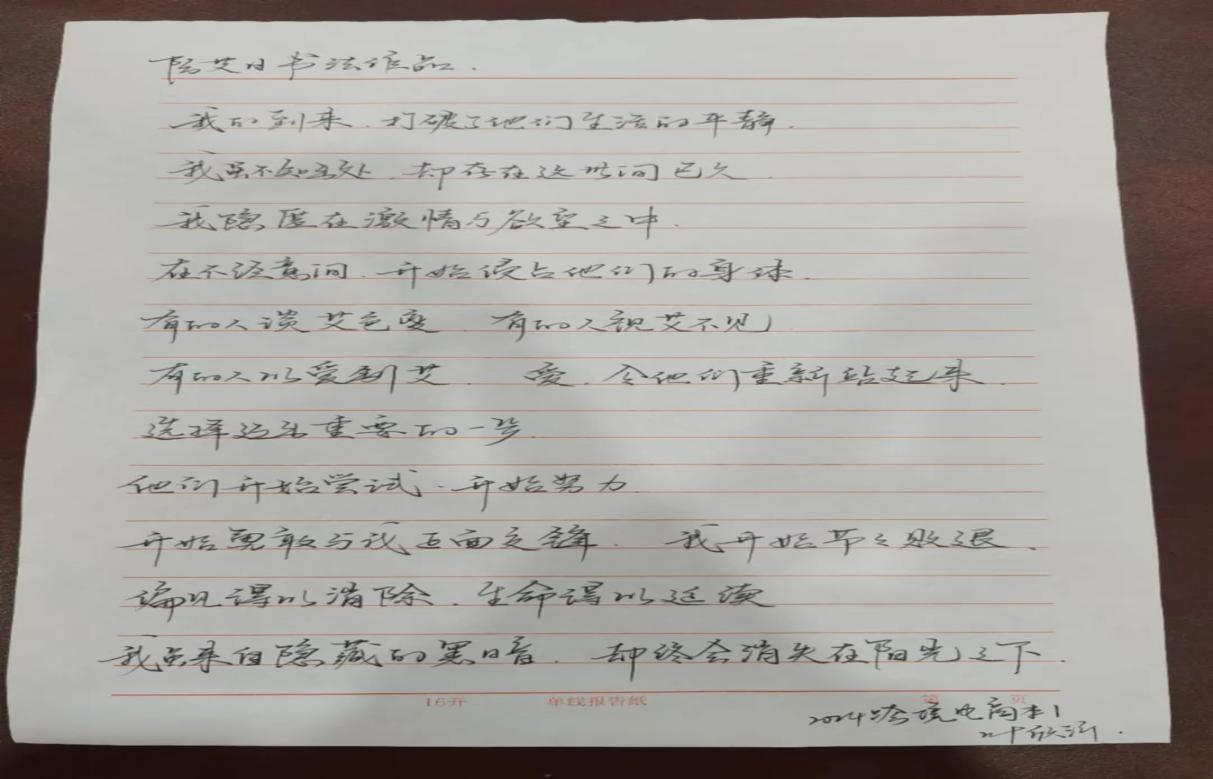 防艾日书法作品.
我的到来.打破了他们生活的平静.
我虽不知来处.却存在这世间已久.
我隐匿在激情与欲望之中.
在不经意间.开始侵占他们的身体.
有的人谈艾色变 有的人视艾不见
有的人以爱制艾. 爱.令他们重新站起来.
选择迈出重要的一步.
他们开始尝试.开始努力.
开始勇敢与我正面交锋. 我开始节节败退.
偏见得以消除.生命得以延续
我虽来自隐藏的黑暗.却终会消失在阳光之下.
16开 单线报告纸 第 页
2024跨境电商本1
叶欣